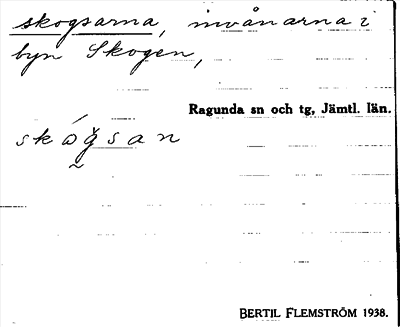 skogsarna, invånarna i
byn Skogen,
Ragunda sn och tg, Jämtl. län.
skɷ́ǧsan
BERTIL FLEMSTRÖM 1938.